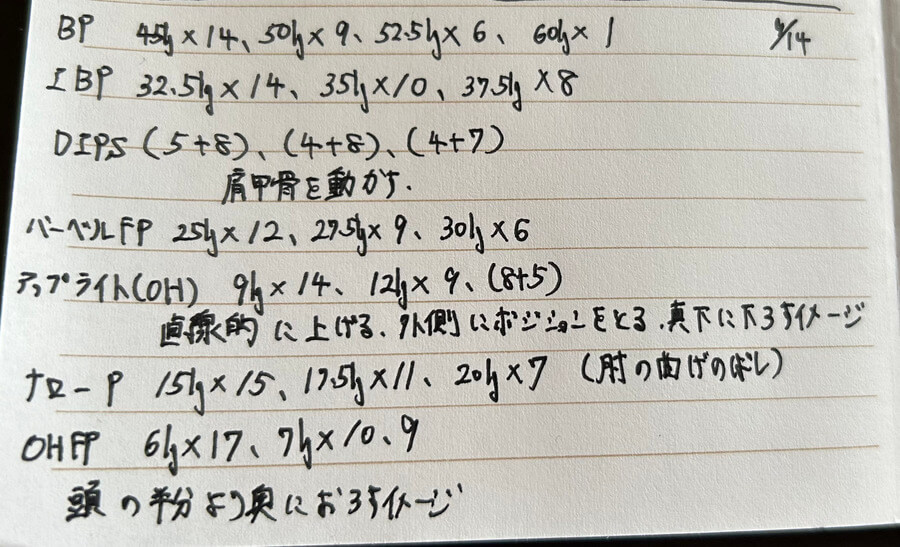 BP 45kg×14、50kg×9、52.5kg×6、60kg×1 /14
IBP 32.5kg×14、35kg×10、37.5kg×8
DIPS (5+8)、(4+8)、(4+7)
肩甲骨を動かす.
バーベルFP 25kg×12、27.5kg×9、30kg×6
アップライト(OH) 9kg×14、12kg×9、(8+5)
直線的に上げる、外側にポジションをとる.真下に下ろすイメージ
ナローP 15kg×15、17.5kg×11、20kg×7 (肘の曲げのばし)
OHFP 6kg×17、7kg×10、9
頭の半分より奥におろすイメージ